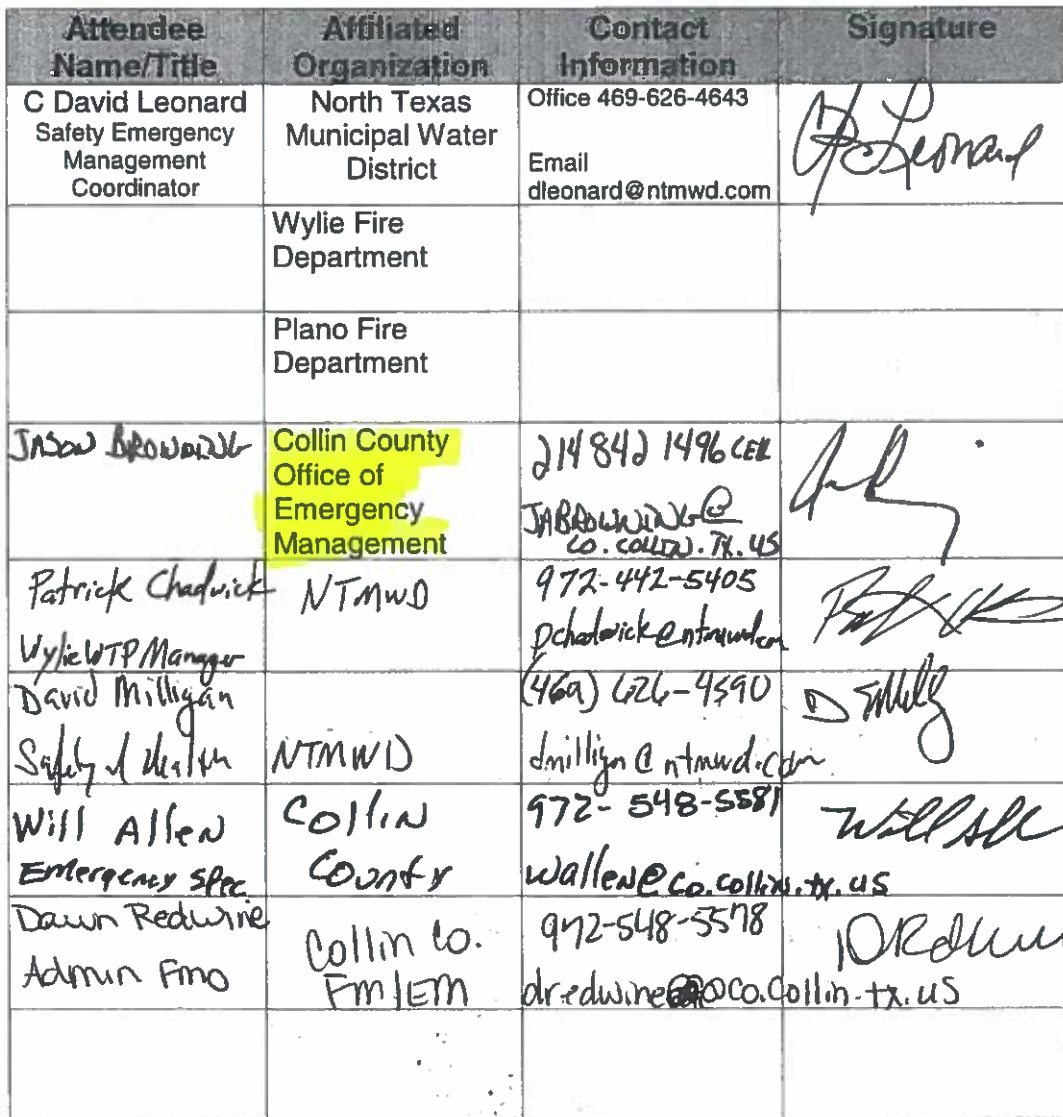 Attendee Name/Title Affiliated Organization Contact Information Signature
C David Leonard
Safety Emergency
Management
Coordinator
North Texas
Municipal Water
District
Office 469-626-4643
Email
dleonard@ntmwd.com
Leonard
Wylie Fire
Department
Plano Fire
Department
JASON BROWNING
Collin County
Office of
Emergency
Management
214 842 1496 CELL
JABROWNING@
CO.COLLIN.TX.US
Patrick Chadwick
Wylie WTP Manager
NTMWD
972-442-5405
pchadwick@ntmwd.com
David Milligan
Safety & Health
NTMWD
(469) 626-4590
dmilligan@ntmwd.com
Will Allen
Emergency Spec.
Collin
County
972-548-5581
wallen@co.collin.tx.us
Dawn Redwine
Admin FMO
Collin Co.
FM/EM
972-548-5578
dredwine@co.collin.tx.us